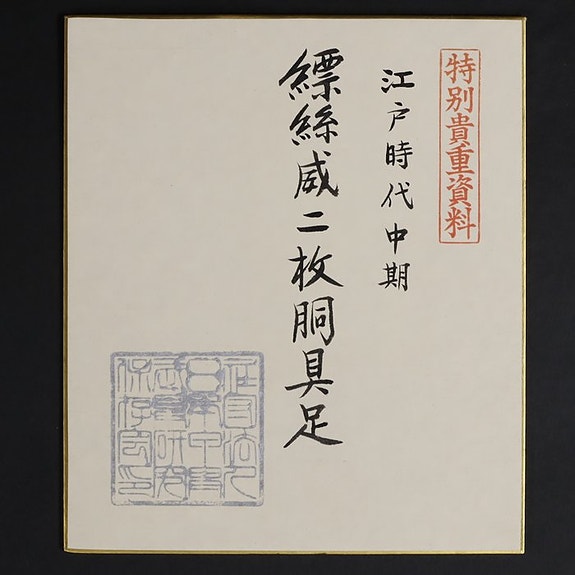 特別貴重資料
江戸時代中期
縹絲威二枚胴具足